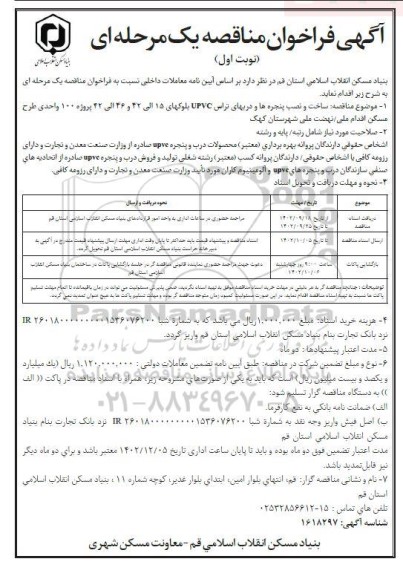 آگهی فراخوان مناقصه یک مرحله ای
(نوبت اول)
بنیاد مسکن انقلاب اسلامی استان قم در نظر دارد بر اساس آیین نامه معاملات داخلی نسبت به فراخوان مناقصه یک مرحله ای
به شرح زیر اقدام نماید.
۱- موضوع مناقصه: ساخت و نصب پنجره ها و دربهای تراس UPVC بلوکهای ۱۵ الی ۴۲ و ۳۶ الی ۴۲ پروژه ۱۰۰ واحدی طرح
مسکن اقدام ملی/نهضت ملی شهرستان کهک
۲- صلاحیت مورد نیاز شامل رتبه/ پایه و رشته
اشخاص حقوقی دارندگان پروانه بهره برداری (معتبر) محصولات درب و پنجره upvc صادره از وزارت صنعت معدن و تجارت و دارای
رزومه کافی یا اشخاص حقوقی / دارندگان پروانه کسب (معتبر) رشته شغلی تولید و فروش درب و پنجره upvc صادره از اتحادیه های
صنفی سازندگان درب و پنجره های upvc و آلومینیوم کاران مورد تایید وزارت صنعت معدن و تجارت و دارای رزومه کافی.
۳- نحوه و مهلت دریافت و تحویل اسناد
موضوع تاریخ / مهلت نحوه دریافت و ارسال
دریافت اسناد مناقصه از تاریخ ۱۴۰۲/۰۹/۱۸ تا تاریخ ۱۴۰۲/۰۹/۲۵ مراجعه حضوری در ساعات اداری به واحد امور قراردادهای بنیاد مسکن انقلاب اسلامی استان قم
ارسال اسناد مناقصه تا تاریخ ۱۴۰۲/۱۰/۰۵
بازگشایی پاکات ساعت ۹:۰۰ روز چهارشنبه ۱۴۰۲/۱۰/۰۶
۴- هزینه خرید اسناد: مبلغ ۱،۰۰۰،۰۰۰ ریال می باشد که به شماره شبا IR ۲۶۰۱۸۰۰۰۰۰۰۰۰۰۰۱۵۳۶۰۷۶۲۰۰
نزد بانک تجارت بنام بنیاد مسکن انقلاب اسلامی استان قم واریز گردد.
۵- مدت اعتبار پیشنهادها: دو ماه
۶- نوع و مبلغ تضمین شرکت در مناقصه: طبق آیین نامه تضمین معاملات دولتی : ۱،۱۲۰،۰۰۰،۰۰۰ ریال (یک میلیارد
و یکصد و بیست میلیون ریال) است که باید به یکی از صورت‌های مشروحه زیر، همراه با اسناد مناقصه در پاکت (( الف
)) به دستگاه مناقصه گزار تسلیم شود:
الف) ضمانت نامه بانکی به نفع کارفرما.
ب) اصل فیش واریز وجه نقد به شماره شبا IR ۲۶۰۱۸۰۰۰۰۰۰۰۰۰۰۱۵۳۶۰۷۶۲۰۰ نزد بانک تجارت بنام بنیاد
مسکن انقلاب اسلامی استان قم
مدت اعتبار تضمین فوق دو ماه بوده و باید تا پایان ساعت اداری تاریخ ۱۴۰۲/۱۲/۰۵ معتبر باشد و برای دو ماه دیگر
نیز قابل تمدید باشد.
۷- نام و نشانی مناقصه گزار: قم، انتهای بلوار امین، ابتدای بلوار غدیر، کوچه شماره ۱۱ ، بنیاد مسکن انقلاب اسلامی
استان قم
تلفن های تماس : ۱۵-۰۲۵۳۲۸۵۶۶۱۲
شناسه آگهی: ۱۶۱۸۲۹۷
بنیاد مسکن انقلاب اسلامی قم - معاونت مسکن شهری
۰۲۱-۸۸۳۴۹۶۷۰